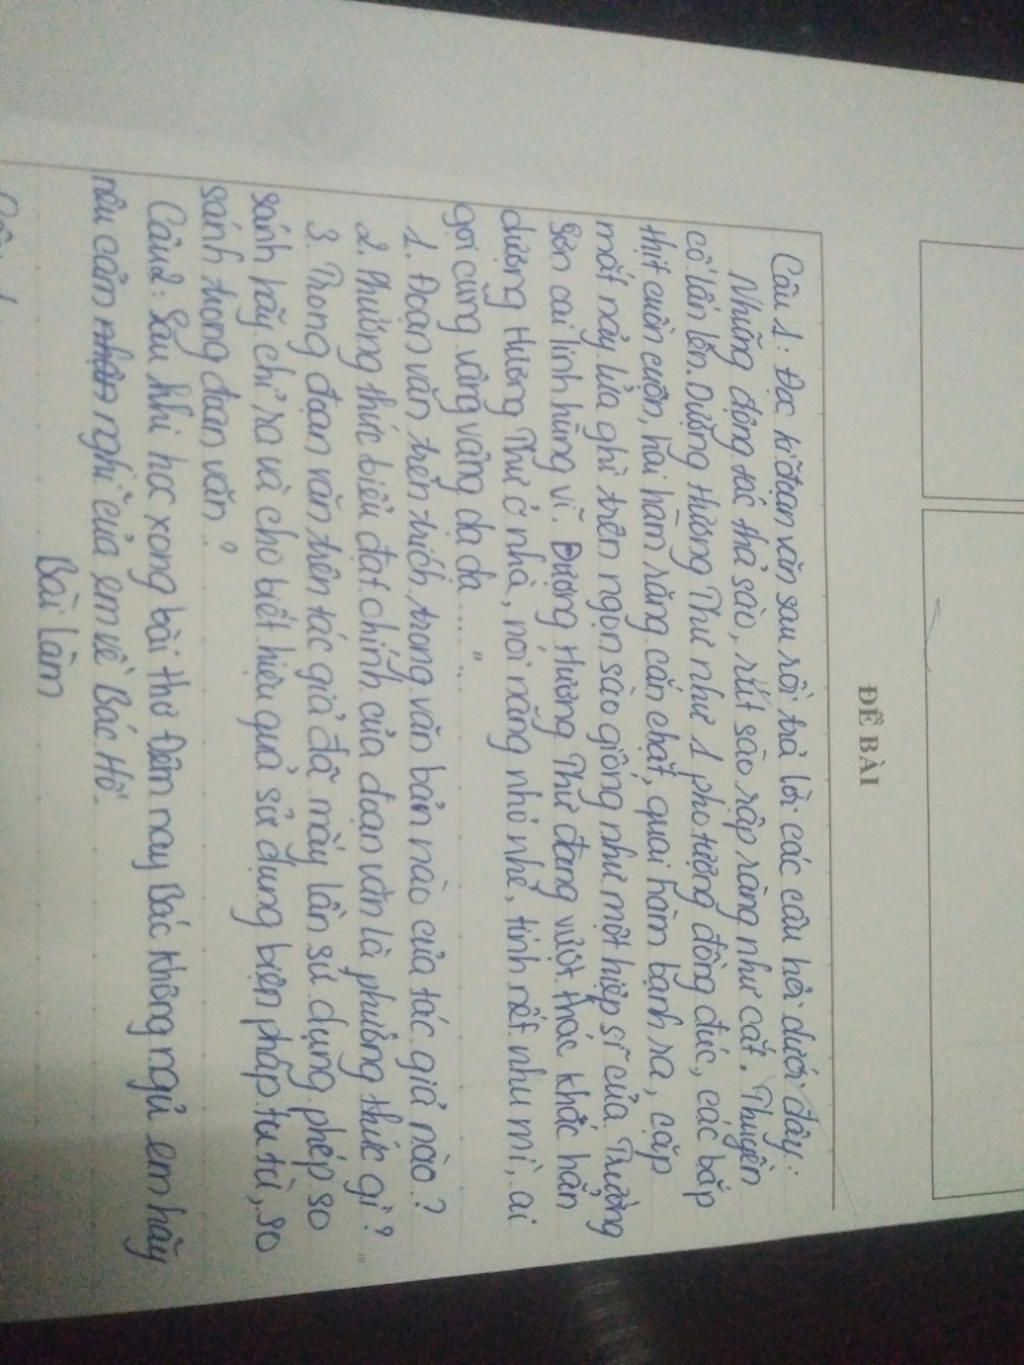 ĐỀ BÀI
Câu 1: Đọc kĩ đoạn văn sau rồi trả lời các câu hỏi dưới đây:
Những động tác thả sào, rút sào rập ràng như cắt. Thuyền
cố lấn lên. Dượng Hương Thư như 1 pho tượng đồng đúc, các bắp
thịt cuồn cuộn, hai hàm răng cắn chặt, quai hàm bạnh ra, cặp
mắt nảy lửa ghì trên ngọn sào giống như một hiệp sĩ của Trường
Sơn oai linh hùng vĩ. Dượng Hương Thư đang vượt thác khác hẳn
dượng Hương Thư ở nhà, nói năng nhỏ nhẻ, tính nết nhu mì, ai
gọi cũng vâng vâng dạ dạ ..... "
1. Đoạn văn trên trích trong văn bản nào của tác giả nào?
2. Phương thức biểu đạt chính của đoạn văn là phương thức gì?
3. Trong đoạn văn trên tác giả đã mấy lần sử dụng phép so
sánh hãy chỉ ra và cho biết hiệu quả sử dụng biện pháp tu từ, so
sánh trong đoạn văn?
Câu 2: Sau khi học xong bài thơ Đêm nay Bác không ngủ em hãy
nêu cảm nghĩ của em về Bác Hồ.
Bài làm